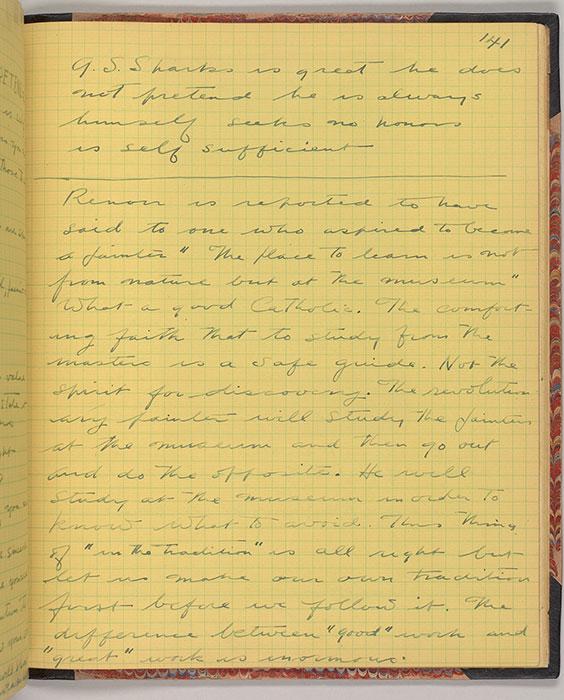 141
G. S. Sparks is great he does
not pretend he is always
himself seeks no honors
is self sufficient
Renoir is reported to have
said to one who aspired to become
a painter " The place to learn is not
from nature but at the museum"
What a good Catholic. The comfort-
ing faith that to study from the
masters is a safe guide. Not the
spirit for discovery. The revolution
ary painter will study the painters
at the museum and then go out
and do the opposite. He will
study at the museum in order to
know what to avoid. This thing
of "in the tradition" is all right but
let us make our own tradition
first before we follow it. The
difference between "good" work and
"great" work is enormous.